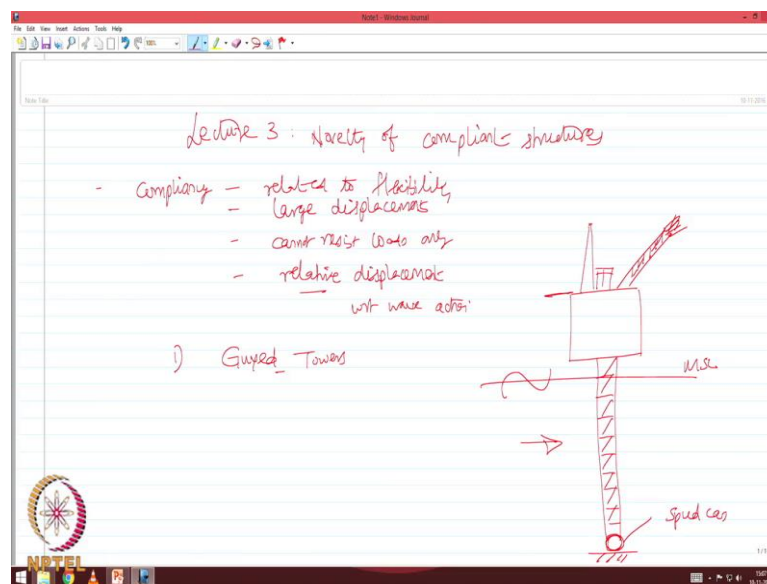 Note1 - Windows Journal
File Edit View Insert Actions Tools Help
Note Title
Lecture 3 : Novelty of compliant structures
- Compliancy - related to flexibility
- large displacements
- cannot resist loads only
- relative displacement
wrt wave action
1) Guyed Towers
MSL
Spud can
NPTEL
1/1